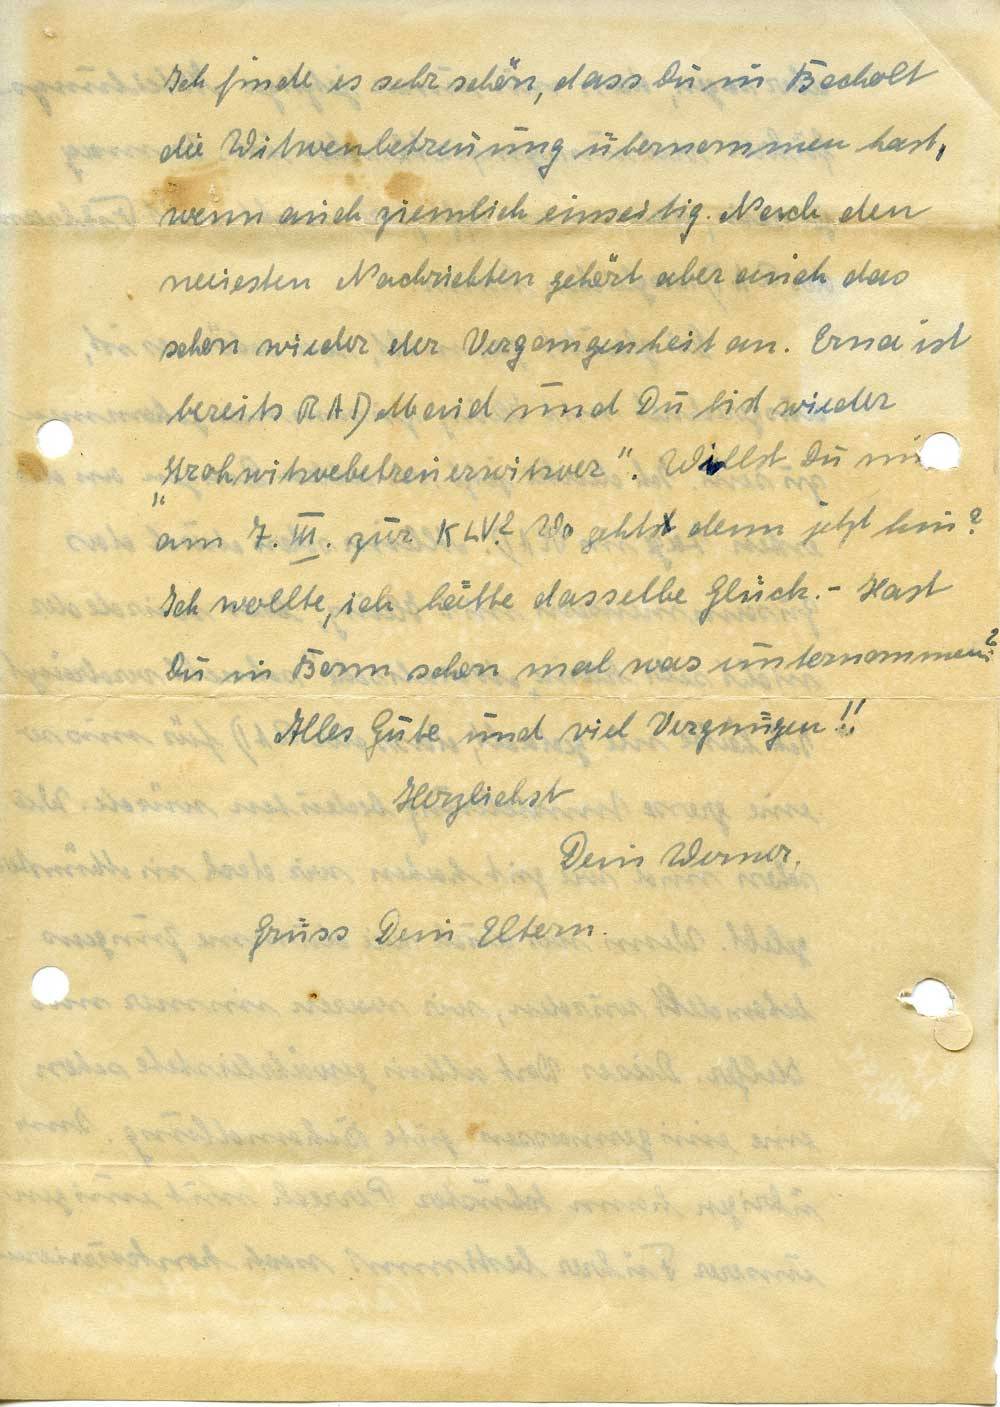 Ich finde es sehr schön, dass Du in Bocholt
die Witwenbetreuung übernommen hast,
wenn auch ziemlich einseitig. Nach den
neuesten Nachrichten gehört aber auch das
schon wieder der Vergangenheit an. Erna ist
bereits RAD Maid und Du bist wieder
"Strohwitwebetreuerwitwer". Willst Du nun
am 7. III. zur KLV? Wo gehts denn jetzt hin?
Ich wollte, ich hätte dasselbe Glück. - Hast
Du in Bonn schon mal was unternommen?
Alles Gute und viel Vergnügen!!
Herzlichst
Dein Werner.
Grüss Dein Eltern.